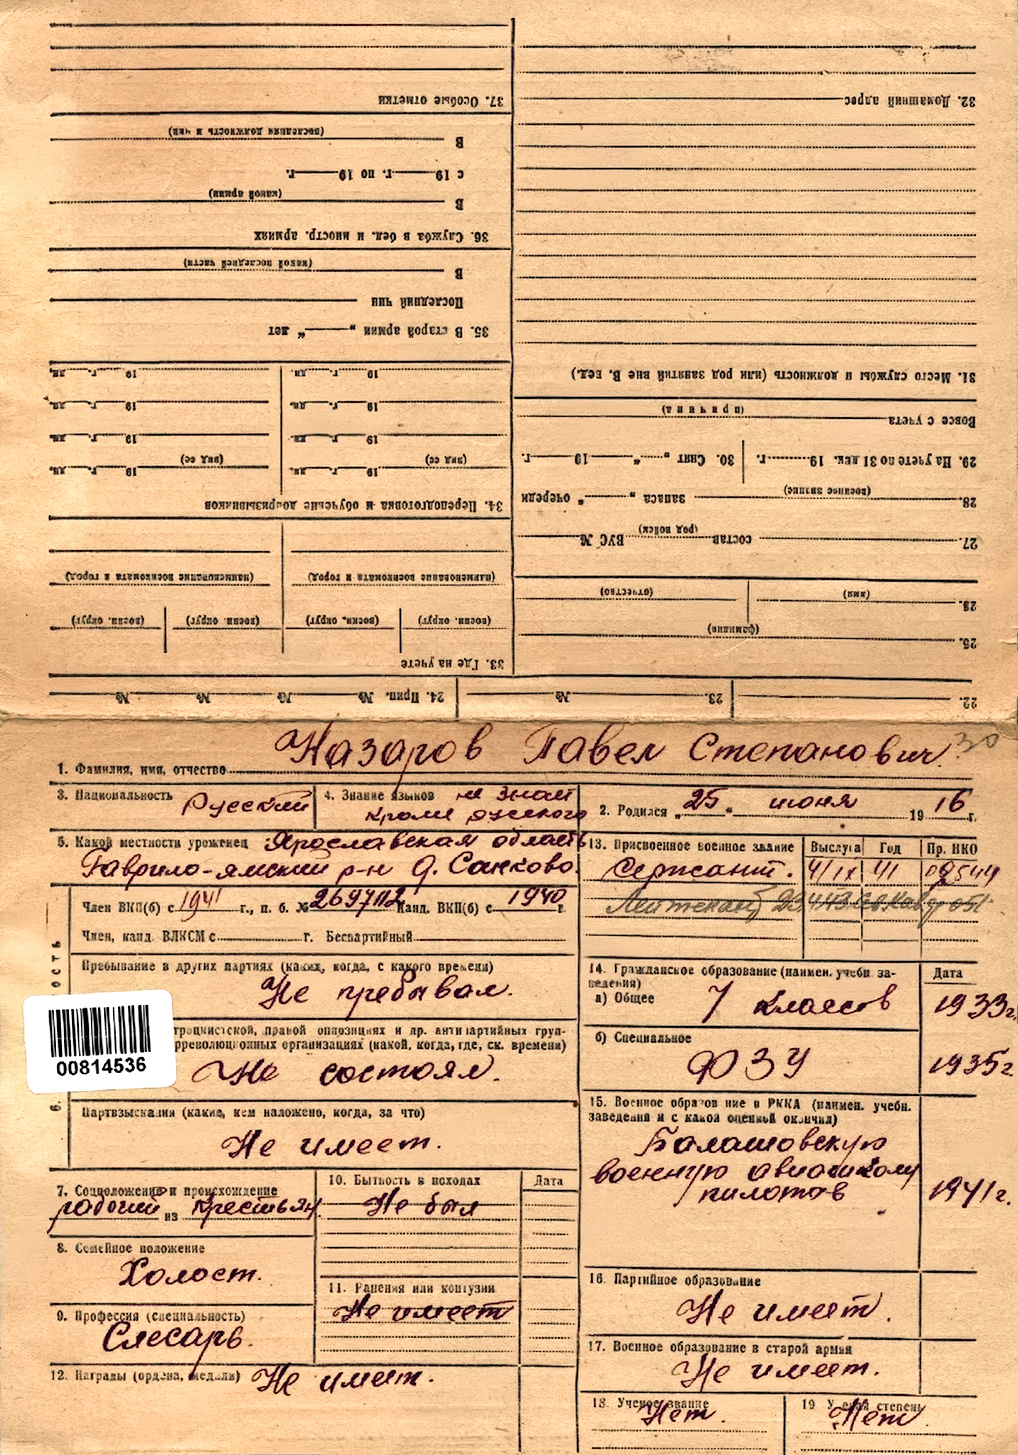 37. Особые отметки
(последняя должность и чин)
В
с 19 г. по 19 г.
(какой армии)
В
36. Служба в бел. и иностр. армиях
(какой последней части)
В
Последний чин
35. В старой армии „ “ лет
19 г. дн. 19 г. дн.
19 г. дн. 19 г. дн.
19 г. дн. 19 г. дн.
(вид сс) (вид сс)
19 г. дн. 19 г. дн.
34. Переподготовка и обучение допризывников
(наименование военкомата и город) (наименование военкомата и город)
(воен. округ) (воен. округ) (воен. округ) (воен. округ)
33. Где на учете
24. Прип. № № № №
32. Домашний адрес
31. Место службы и должность (или род занятий вне В. вед.)
(причина)
Вовсе с учета
29. На учете по 31 дек. 19 г. 30. Снят „ “ 19 г.
(военное звание)
28. запаса „ “ очереди
(род войск)
27. состав ВУС №
(имя) (отчество)
26.
(фамилия)
25.
22. 23. №
1. Фамилия, имя, отчество Назаров Павел Степанович 30
3. Национальность Русский
4. Знание языков не знает
кроме русского
2. Родился „25“ июня 1916 г.
5. Какой местности уроженец Ярославская область
Гаврило-ямский р-н д. Сакково.
13. Присвоенное военное звание Выслуга Год Пр. НКО
Сержант. 4/IX 41
Лейтенант
Член ВКП(б) с 1941 г., п. б. № 2697112 Канд. ВКП(б) с 1940 г.
Член, канд. ВЛКСМ с г. Беспартийный
Пребывание в других партиях (каких, когда, с какого времени)
Не пребывал.
троцкистской, правой оппозициях и др. антипартийных груп-
рреволюционных организациях (какой, когда, где, ск. времени)
Не состоял.
00814536
ость
6.
Партвзыскания (какие, кем наложено, когда, за что)
Не имеет.
14. Гражданское образование (наимен. учебн. за-
ведения)
Дата
а) Общее 7 классов 1933г.
б) Специальное
ФЗУ 1935г.
15. Военное образование в РККА (наимен. учебн.
заведения и с какой оценкой окончил)
Балашовскую
военную авиашколу
пилотов 1941г.
7. Соцположение и происхождение
рабочий из крестьян.
8. Семейное положение
Холост.
9. Профессия (специальность)
Слесарь.
10. Бытность в походах Дата
Не был
11. Ранения или контузии
Не имеет
12. Награды (ордена, медали) Не имеет.
16. Партийное образование
Не имеет.
17. Военное образование в старой армии
Не имеет.
18. Ученое звание
Нет.
19 Ученая степень
Нет.